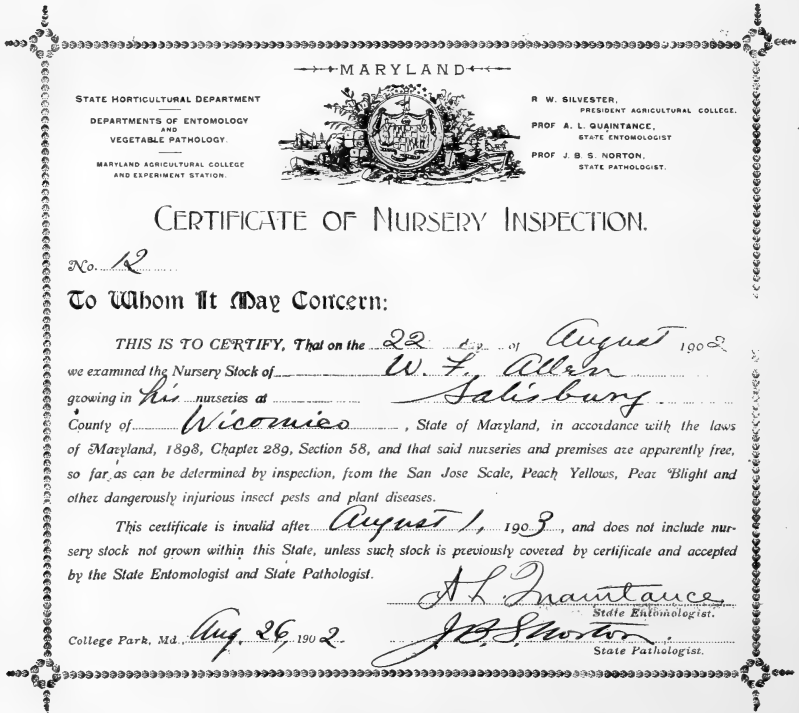 MARYLAND
STATE HORTICULTURAL DEPARTMENT
DEPARTMENTS OF ENTOMOLOGY
AND
VEGETABLE PATHOLOGY.
MARYLAND AGRICULTURAL COLLEGE
AND EXPERIMENT STATION.
R W. SILVESTER,
PRESIDENT AGRICULTURAL COLLEGE.
PROF A. L. QUAINTANCE,
STATE ENTOMOLOGIST
PROF J. B. S. NORTON,
STATE PATHOLOGIST.
CERTIFICATE OF NURSERY INSPECTION.
No. 12
To Whom It May Concern:
THIS IS TO CERTIFY, That on the 22 day of August 1902
we examined the Nursery Stock of W. F. Allen
growing in his nurseries at Salisbury
County of Wicomico, State of Maryland, in accordance with the laws
of Maryland, 1898, Chapter 289, Section 58, and that said nurseries and premises are apparently free,
so far as can be determined by inspection, from the San Jose Scale, Peach Yellows, Pear Blight and
other dangerously injurious insect pests and plant diseases.
This certificate is invalid after August 1, 1903, and does not include nur-
sery stock not grown within this State, unless such stock is previously covered by certificate and accepted
by the State Entomologist and State Pathologist.
A L Quaintance
State Entomologist.
College Park, Md., Aug. 26, 1902.
J. B. S. Norton.
State Pathologist.